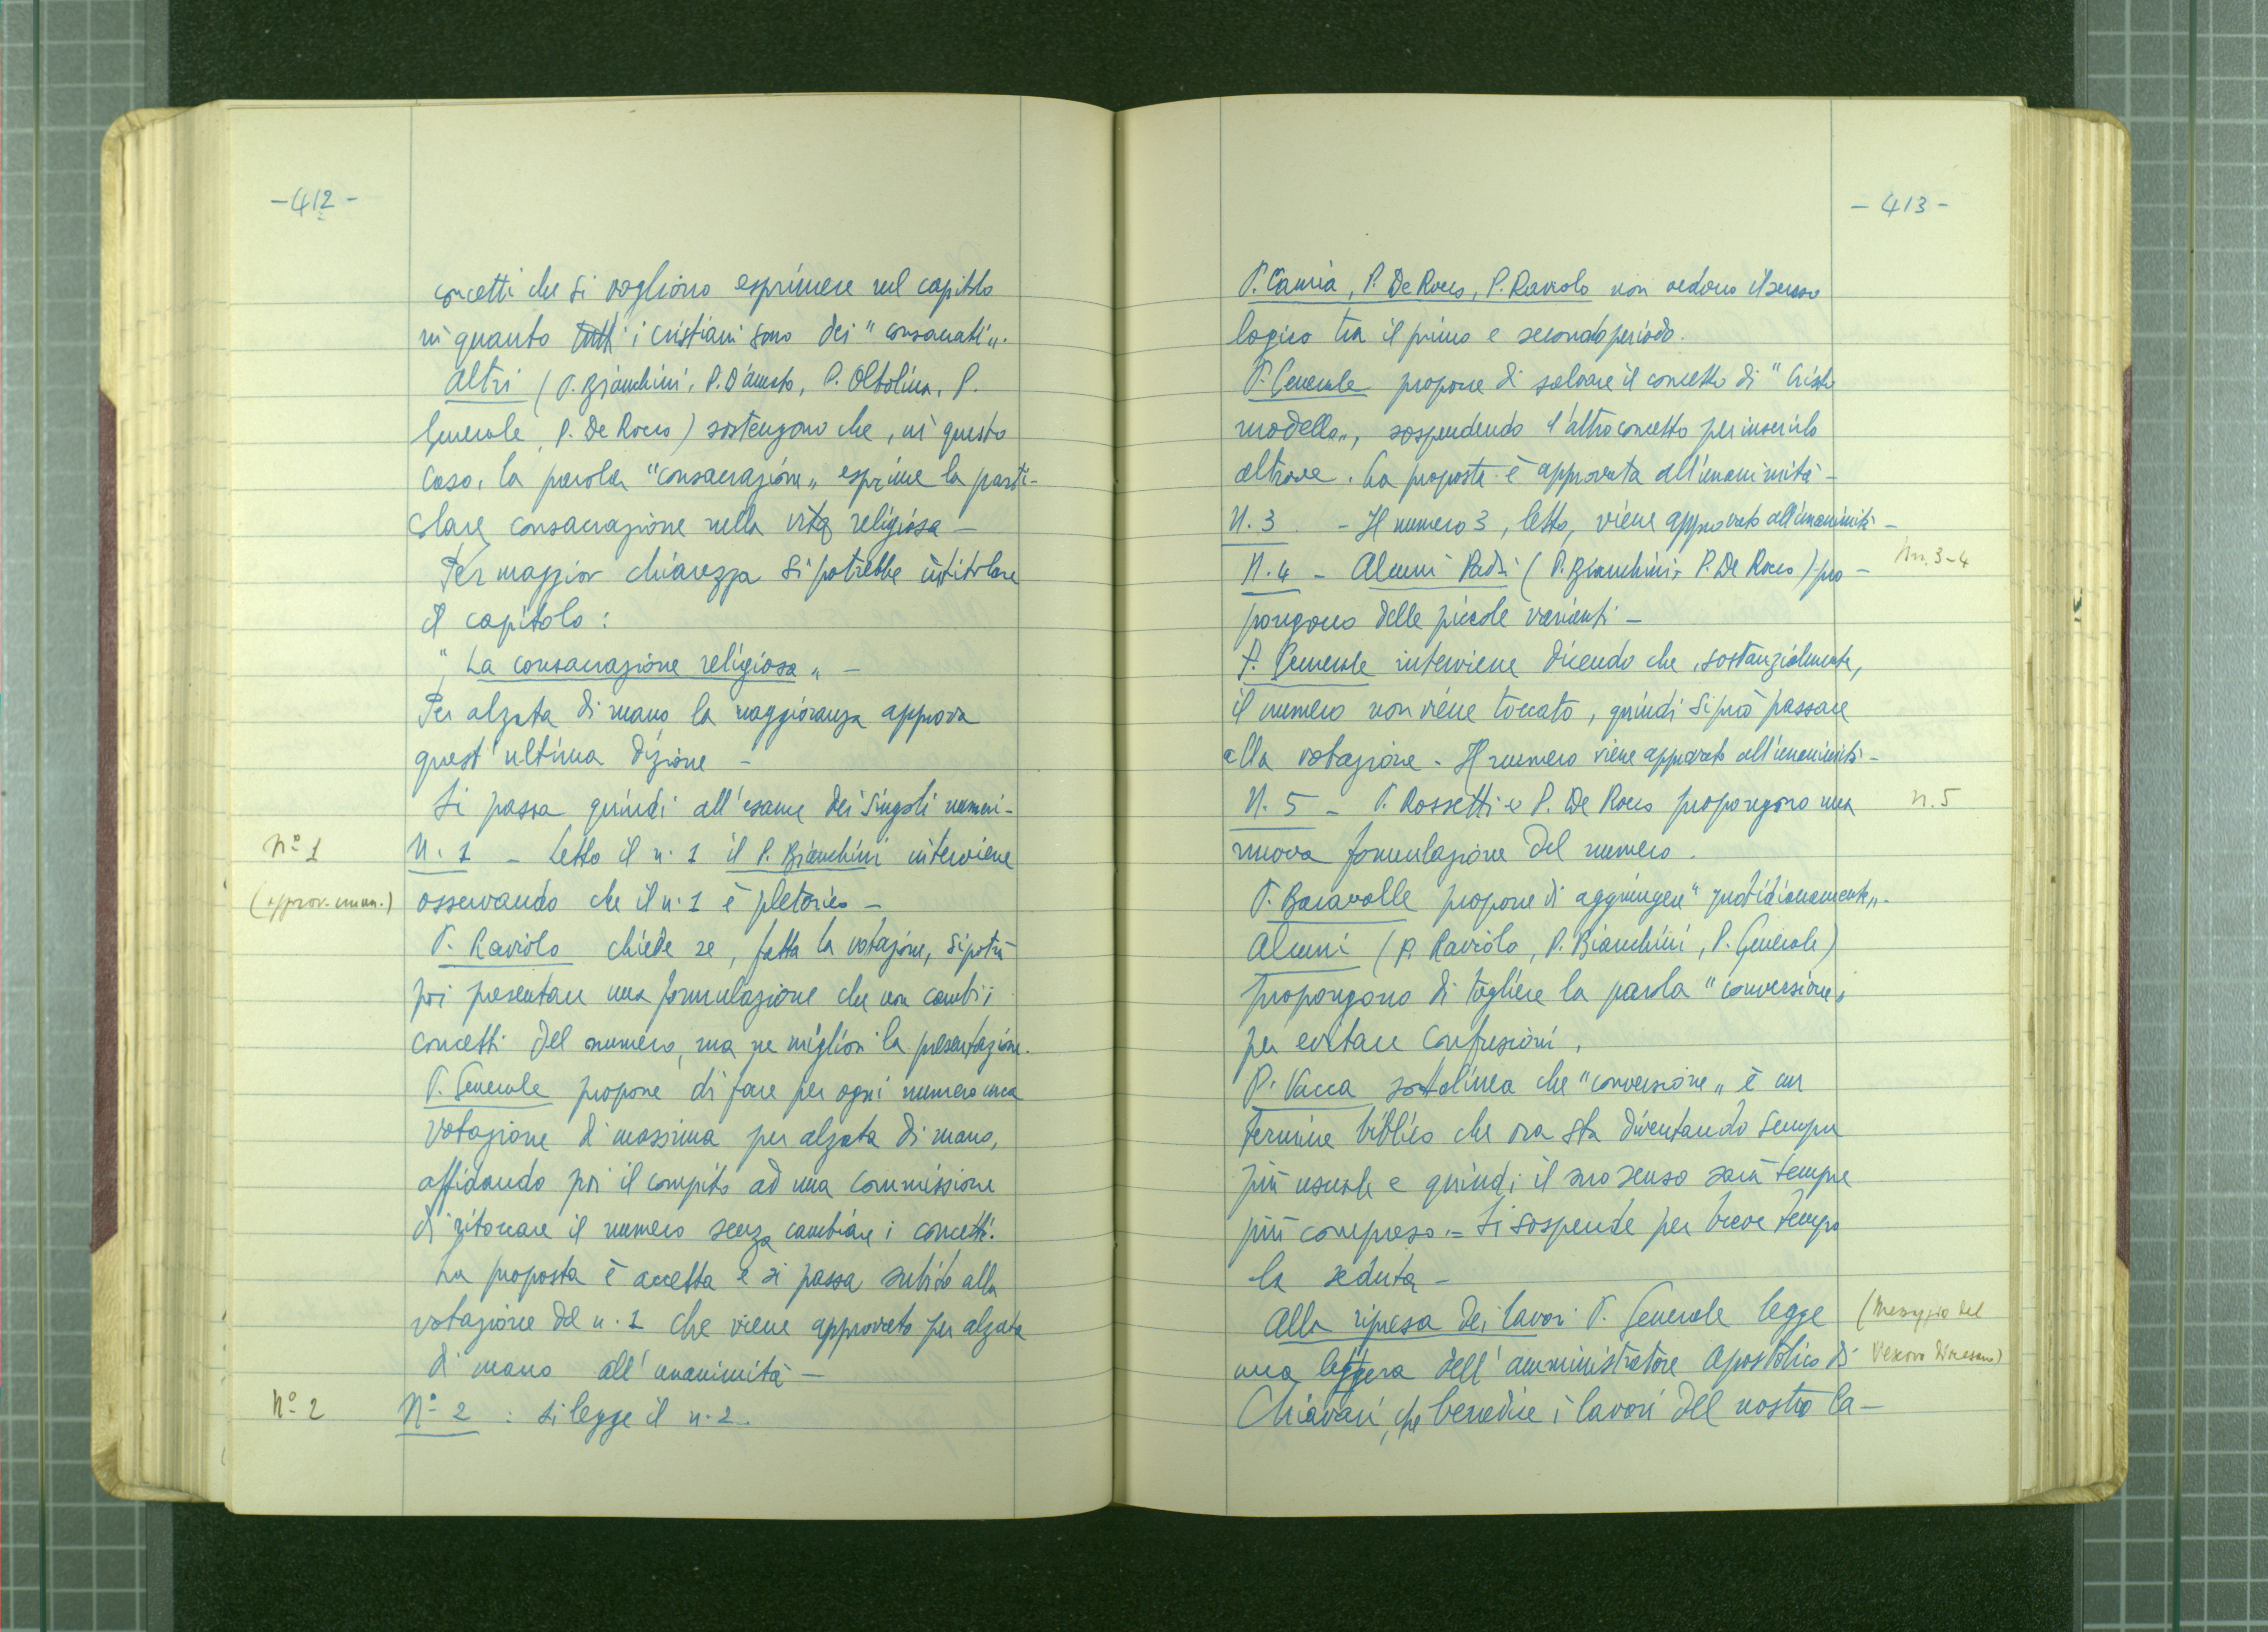 -412-
concetti che si vogliono esprimere nel capitolo
in quanto tutti i cristiani sono dei "consacrati„.
Altri (P. Bianchini, P. D'Amato, P. Oltolina, P.
Generale, P. De Rocco) sostengono che, in questo
caso, la parola "consacrazione„ esprime la parti-
colare consacrazione nella vita religiosa -
Per maggior chiarezza si potrebbe intitolare
il capitolo:
"La consacrazione religiosa„ -
Per alzata di mano la maggioranza approva
quest'ultima dizione -
Si passa quindi all'esame dei singoli numeri -
Nº 1
N. 1 - Letto il n. 1 il P. Bianchini interviene
(approv. unan.)
osservando che il n. 1 è pletorico -
P. Raviolo chiede se, fatta la votazione, si potrà
poi presentare una formulazione che non cambi i
concetti del numero, ma ne migliori la presentazione.
P. Generale propone di fare per ogni numero una
votazione di massima per alzata di mano,
affidando poi il compito ad una commissione
di ritoccare il numero senza cambiare i concetti.
La proposta è accetta e si passa subito alla
votazione del n. 1 che viene approvato per alzata
di mano all'unanimità -
Nº 2
Nº 2 : si legge il n. 2.
- 413 -
P. Camia, P. De Rocco, P. Raviolo non vedono il senso
logico tra il primo e secondo periodo.
P. Generale propone di salvare il concetto di "Cristo
modello„, sospendendo l'altro concetto per inserirlo
altrove. La proposta è approvata all'unanimità -
N. 3 - Il numero 3, letto, viene approvato all'unanimità -
nn. 3-4
N. 4 - Alcuni Padri (P. Bianchini, P. De Rocco) pro-
pongono delle piccole varianti -
P. Generale interviene dicendo che, sostanzialmente,
il numero non viene toccato, quindi si può passare
alla votazione. Il numero viene approvato all'unanimità -
N. 5 - P. Rossetti e P. De Rocco propongono una
n. 5
nuova formulazione del numero.
P. Baravalle propone di aggiungere "quotidianamente„.
Alcuni (P. Raviolo, P. Bianchini, P. Generale)
propongono di togliere la parola "conversione„
per evitare confusioni.
P. Vacca sottolinea che "conversione„ è un
termine biblico che ora sta diventando sempre
più usuale e quindi il suo senso sarà sempre
più compreso. = Si sospende per breve tempo
la seduta -
Alla ripresa dei lavori P. Generale legge
(Messaggio del
una lettera dell'amministratore Apostolico di
Vescovo diocesano)
Chiavari, che benedice i lavori del nostro Ca-